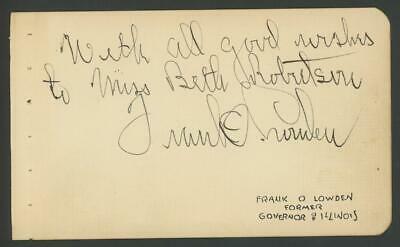 With all good wishes
to Miss Beth Robertson
Frank O. Lowden
FRANK O LOWDEN
FORMER
GOVERNOR of ILLINOIS